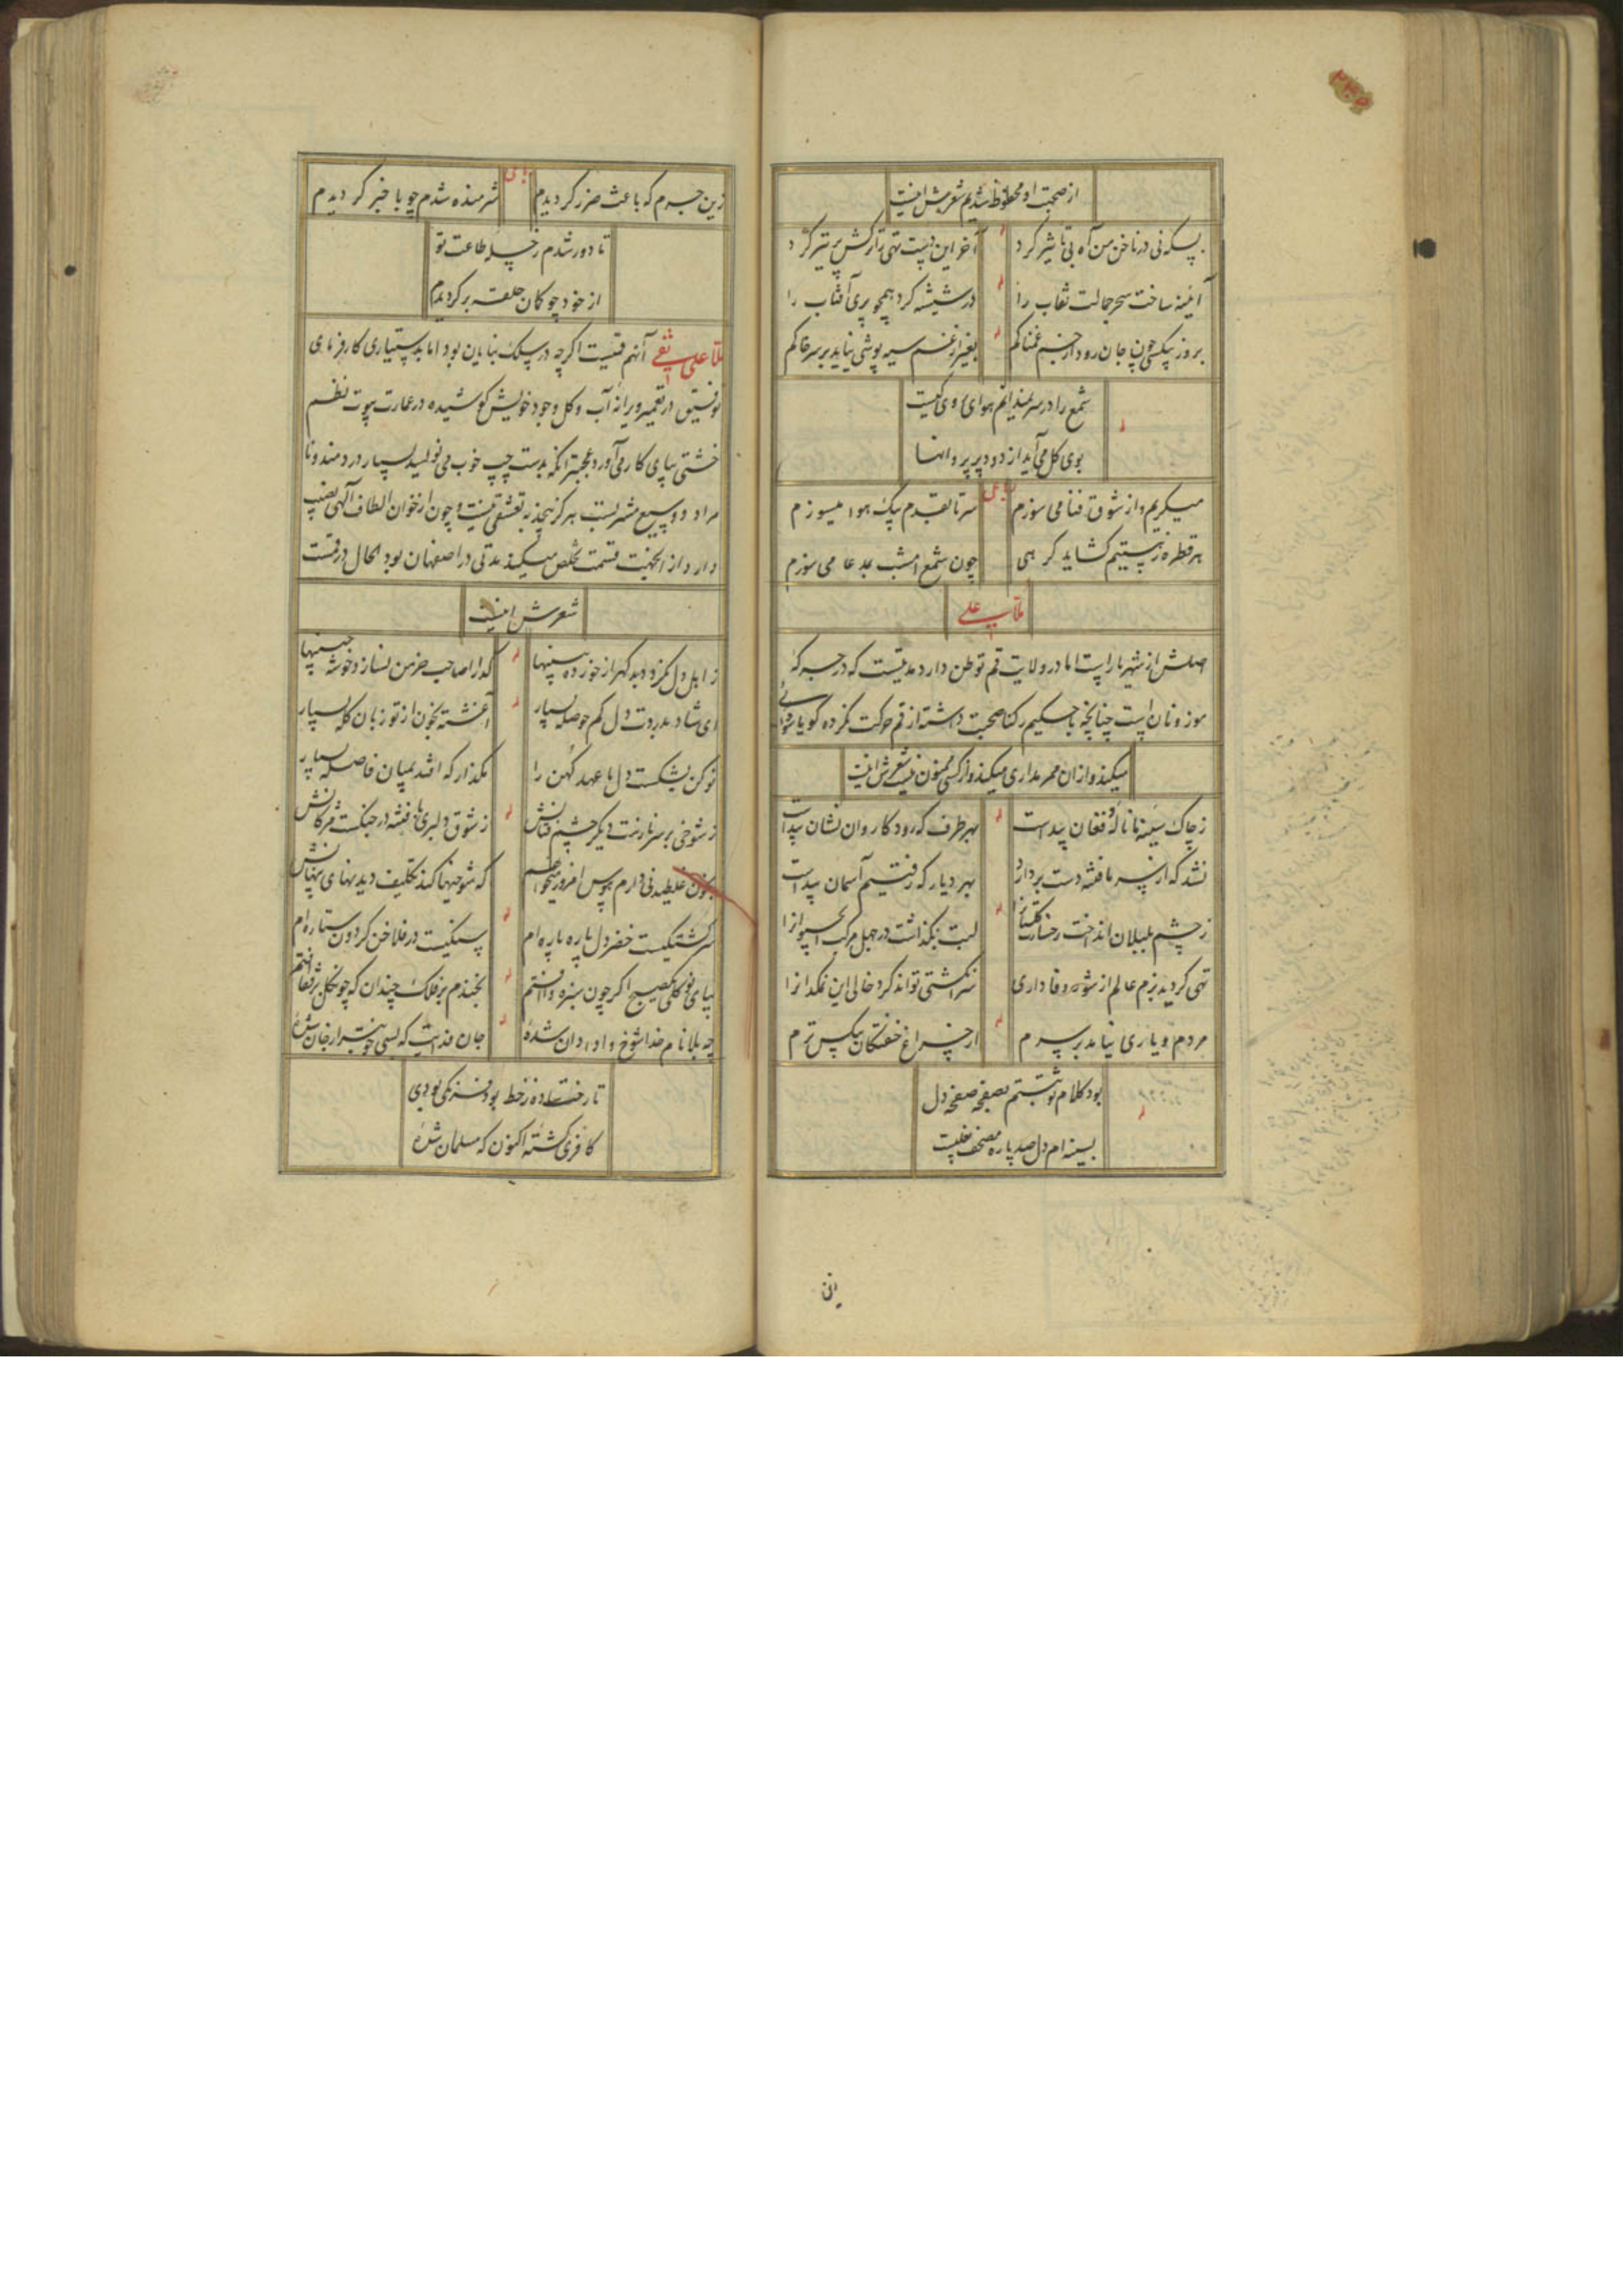 از صحبت او محظوظ شدیم شعرش اینست
بسکه نی در ناخن من آه بی تاثیر کرد
آخر این دست تهی ترکش پر تیر کرد
آینه ساخت سحر جمالت نقاب را
در شیشه کرد همچو پری آفتاب را
بروز بیکسی چون جان رود از جسم غمناکم
بغیر از غم سیه پوشی نیاید بر سر خاکم
شمع را در سر ندانم هوای روی کیست
بوی کل می آید از دود پر پروانها
میکریم و از شوق فنا می سوزم
سر تا بقدم بیک هوا میسوزم
هر قطره ز هستیم کشاید کرهی
چون شمع امشب بمدعا می سوزم
ملا علی
اصلش از شهریار است اما در ولایت قم توطن دارد مدتیست که در جرکهٔ
موزونان است چنانچه با حکیم رکنا صحبت داشته از قم حرکت نکرده کویا
میکند و از آن ممر مداری میکند و از کسی ممنون نیست شعرش اینست
ز چاک سینهٔ ما نالهٔ و فغان پیداست
بهر طرف که رود کاروان نشان پیداست
نشد که از سر ما فتنه دست بردارد
بهر دیار که رفتیم آسمان پیداست
ز چشم بلبلان انداخت رخسارت کلستانرا
لبت نکذاشت در جهل مرکب آب حیوانرا
تهی کردید بزم عالم از شور وفاداری
سر انکشتی تواند کرد خالی این نمکدانرا
مردم و یاری نیامد بر سرم
از چراغ خفتکان بیکس ترم
بود کلام تو ثبتم بصفحه صفحه دل
بسینه ام دل صد پاره مصحف بغلیست
زین جرم که باعث ضرر کردیدم
شرمنده شدم چو با خبر کردیدم
تا دور شدم ز چله طاعت تو
از خود چو کمان حلقه بر کردیدم
ملا علی نقی آنهم قمیست اکرچه در سلک بنایان بود اما بدستیاری کارفرمای
توفیق در تعمیر ویرانهٔ آب و کل وجود خویش کوشیده در عمارت بیوت نظم
خشتی بپای کار می آورد عجبتر آنکه بدست چپ خوب می نویسد بسیار دردمند و نا
مراد و وسیع مشربست هرکز بیجذبه تعشقی نیست و چون از خوان الطاف آلهی نصیب
دارد از انجهت قسمت تخلص میکند مدتی در اصفهان بود الحال در قمست
شعرش اینست
ز اهل دل نکردد بد کهر از خورده بینها
که را صاحب خرمن نساز خوشه چینها
ای شاد بدردت دل کم حوصله بسیار
آغشته بخون از تو زبان کله بسیار
نو کن بشکست دل ما عهد کهن را
مکذار که افتد بمیان فاصله بسیار
ز شوخی بر سر نازست دیکر چشم فتانش
ز شوق دلبری با فتنه در جنکست مژکانش
بخون غلطیدنی دارم هوس امروز میخواهم
که شوخیها کند تکلیف دیدنهای پنهانش
سرکشتکیست خضر دل پاره پاره ام
سنکیست در فلاخن کردون ستاره ام
بپای نو کلی صبح اکر چون سبزه وا افتم
بخندم بر فلک چندان که چون کل بر قفا افتم
چه بلا نام خدا شوخ و ادادان شدهٔ
جان فدایت که بسی خوبتر از جان شدهٔ
تا رخت ساده ز خط بود فرنکی بودی
کافری کشتهٔ اکنون که مسلمان شدهٔ